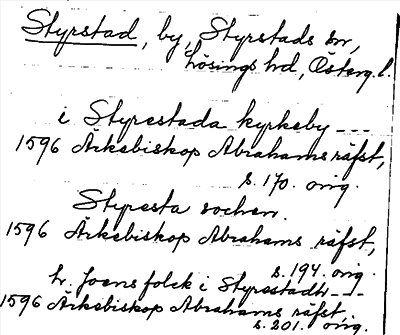 Styrstad, by, Styrstads sn,
Lösings hd, Österg.l.
i Styrestada kyrkeby ---
1596 Ärkebiskop Abrahams räfst,
s. 170. orig.
Styresta sochen.
1596 Ärkebiskop Abrahams räfst,
s. 194. orig.
h. Joens folck i Styrestadh ---
1596 Ärkebiskop Abrahams räfst.
s. 201. orig.